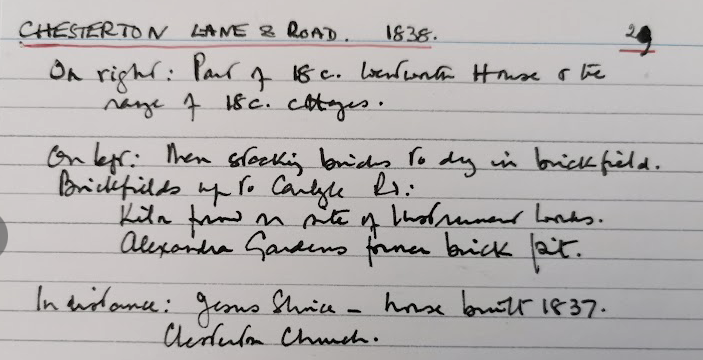 CHESTERTON LANE & ROAD. 1838. 29
On right: Part of 18c. Wentworth House & the
range of 18c. cottages.
On left: Men stacking bricks to dry in brickfield.
Brickfields up to Carlyle Rd:
Kiln found on site of Instrument Works.
Alexandra Gardens former brick pit.
In distance: Jesus Sluice – house built 1837.
Chesterton Church.